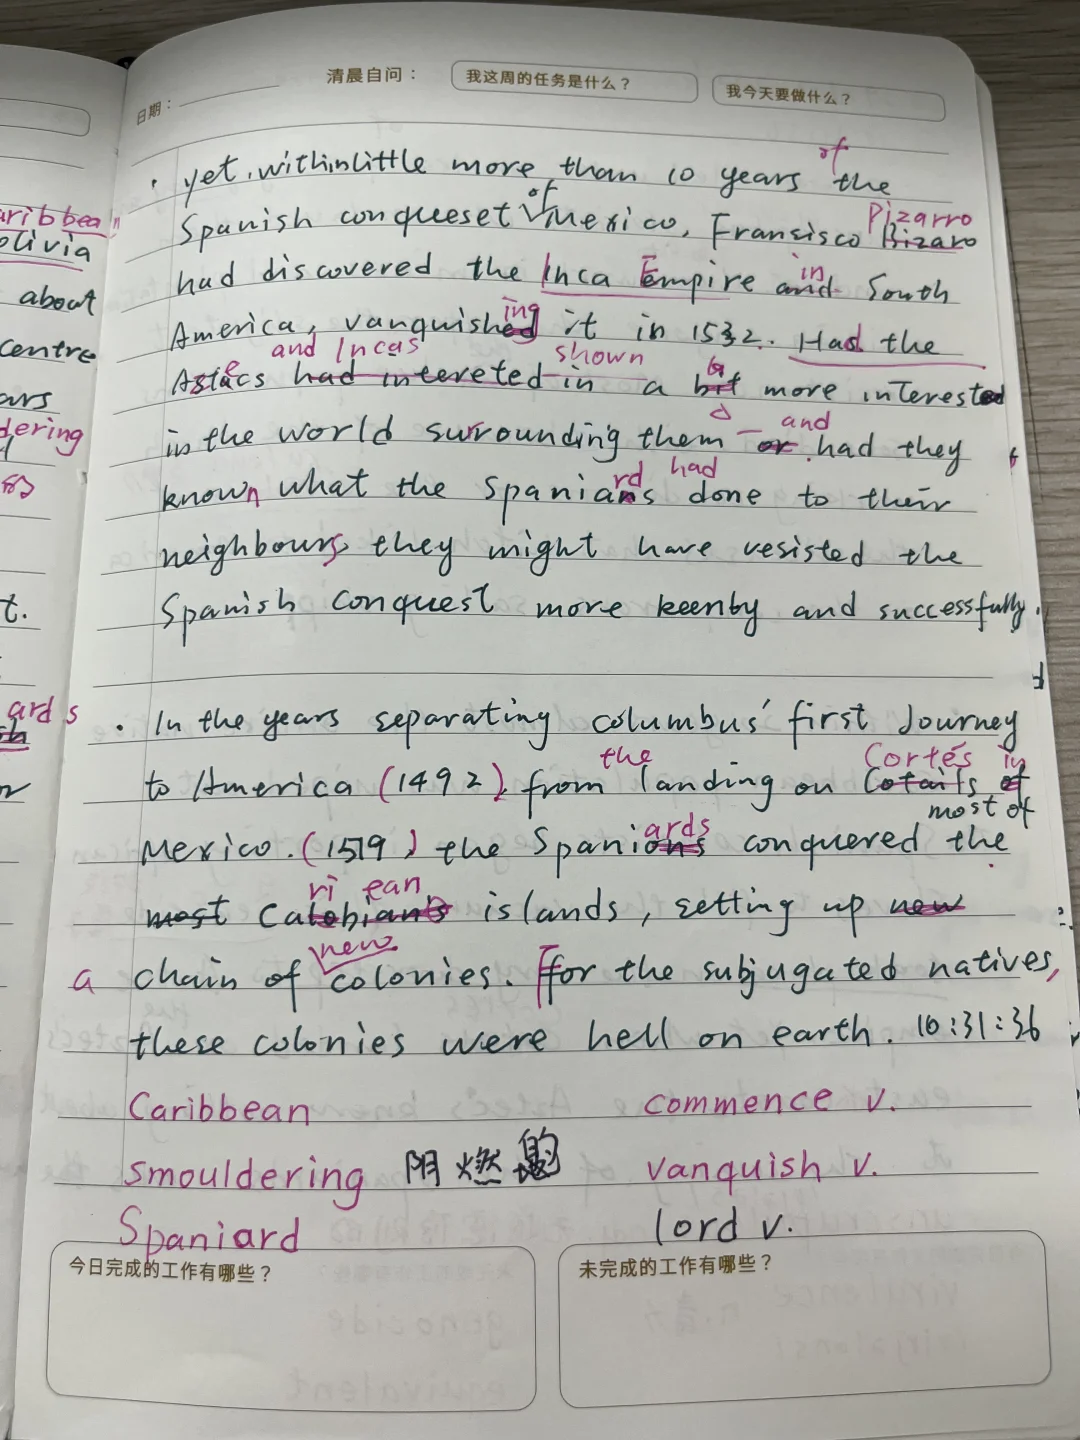 清晨自问：
我这周的任务是什么？
我今天要做什么？
日期：
of
· yet, within little more than 10 years the
of Pizarro
Spanish conqueset Mexico, Fransisco Bizaro
in
had discovered the Inca Empire and South
ing
America, vanquished it in 1532. Had the
and Incas shown
had intereted in a bit more interested
and
in the world surrounding them — or had they
rd had
known what the Spanians done to their
neighbours, they might have resisted the
Spanish conquest more keenby and successfully.
· In the years separating columbus' first Journey
the Cortés in
to America (1492) from landing on Cotails of
most of
ards
Mexico. (1519) the Spanions conquered the
ri ean
most islands, setting up new
new
a chain of colonies. For the subjugated natives,
these colonies were hell on earth. 10:31:36
Caribbean commence v.
smouldering 阴燃的 vanquish v.
Spaniard lord v.
今日完成的工作有哪些？
未完成的工作有哪些？
aribbean
olivia
about
centre
ars
dering
t.
ards